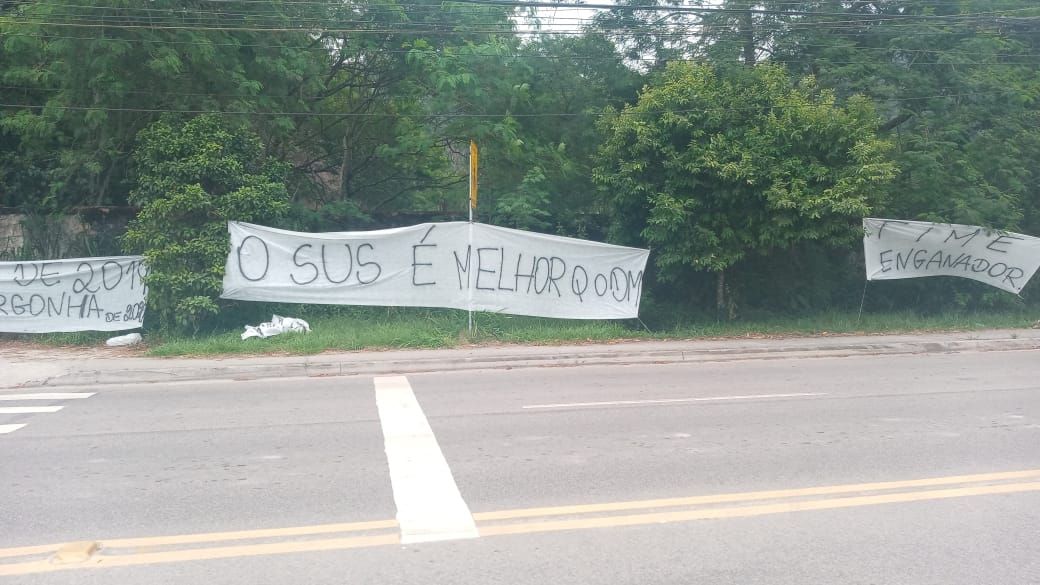 DE 2019
RGONHA DE 202
O SUS É MELHOR Q O DM
TIME
ENGANADOR.